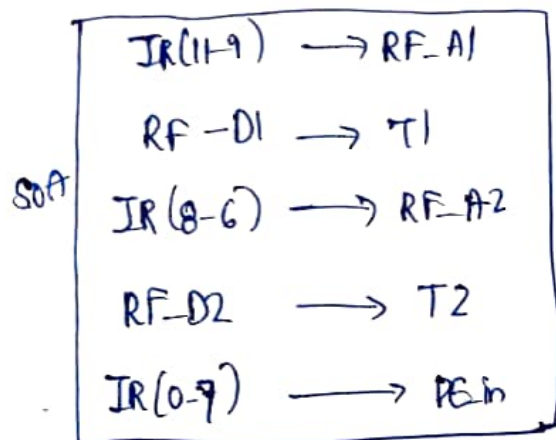 IR(11-9) → RF_A1
RF-D1 → T1
SOA
IR(8-6) → RF_A2
RF_D2 → T2
IR(0-7) → PE_in